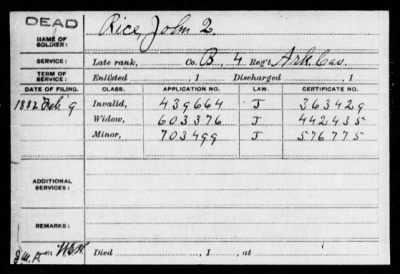 DEAD
NAME OF SOLDIER: Rice, John Q.
SERVICE: Late rank, Co. B, 4 Reg't Ark. Cav.
TERM OF SERVICE: Enlisted , 1 Discharged , 1
DATE OF FILING. CLASS. APPLICATION NO. LAW. CERTIFICATE NO.
1882 Feb 9 Invalid, 439664 J 363429
Widow, 603376 J 442435
Minor, 703499 J 576775
ADDITIONAL SERVICES:
REMARKS:
Died , 1 , at